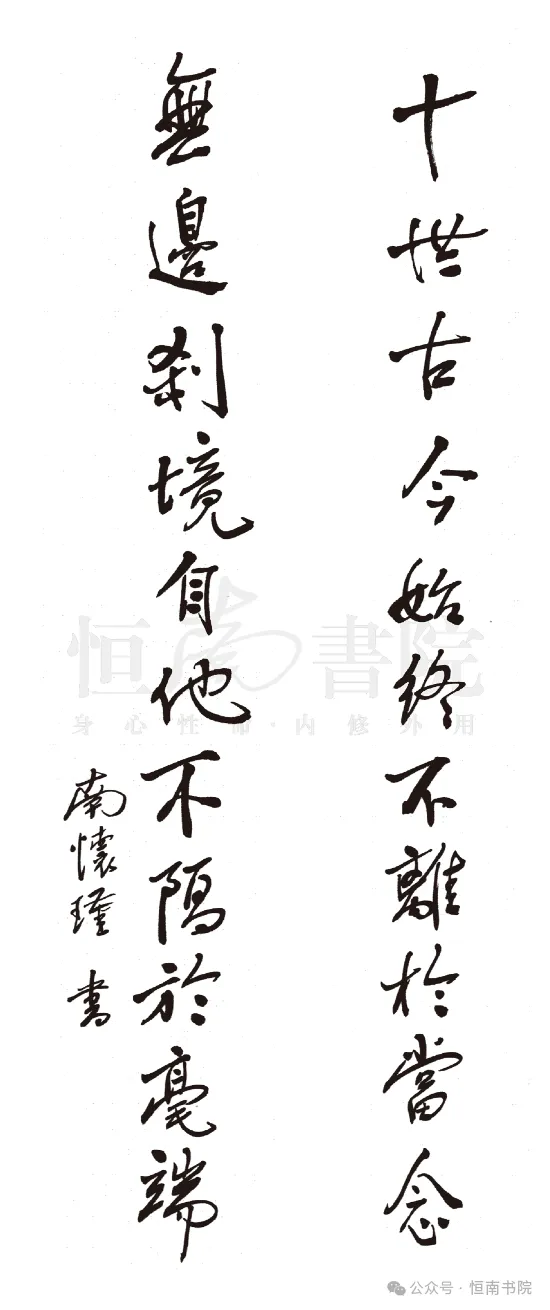 十世古今始終不離於當念
無邊刹境自他不隔於毫端
南懷瑾 書
恒南書院
身心性命·内修外用
公众号·恒南书院